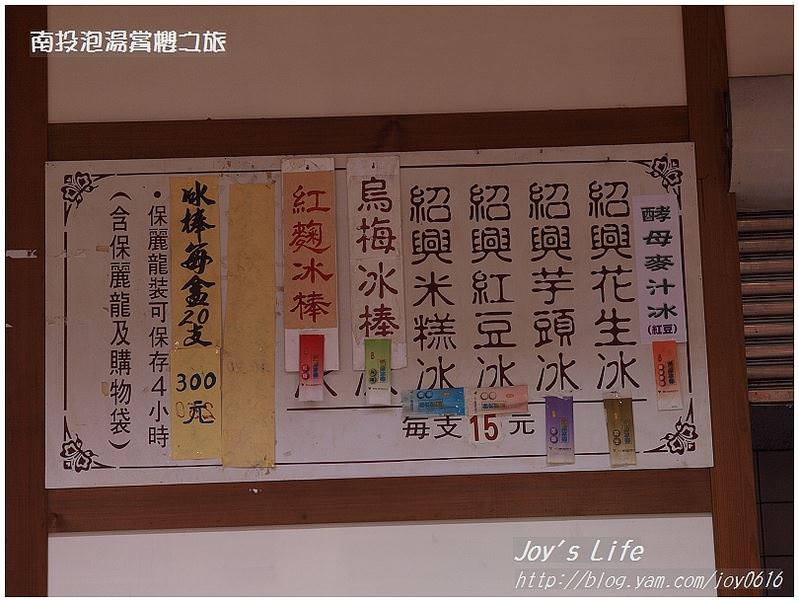 南投泡湯賞櫻之旅
酵母麥汁冰
(紅豆)
紹興花生冰
紹興芋頭冰
紹興紅豆冰
紹興米糕冰
每支15元
烏梅冰棒
紅麴冰棒
冰棒每盒20支
300元
•保麗龍裝可保存4小時
(含保麗龍及購物袋)
Joy's Life
http://blog.yam.com/joy0616